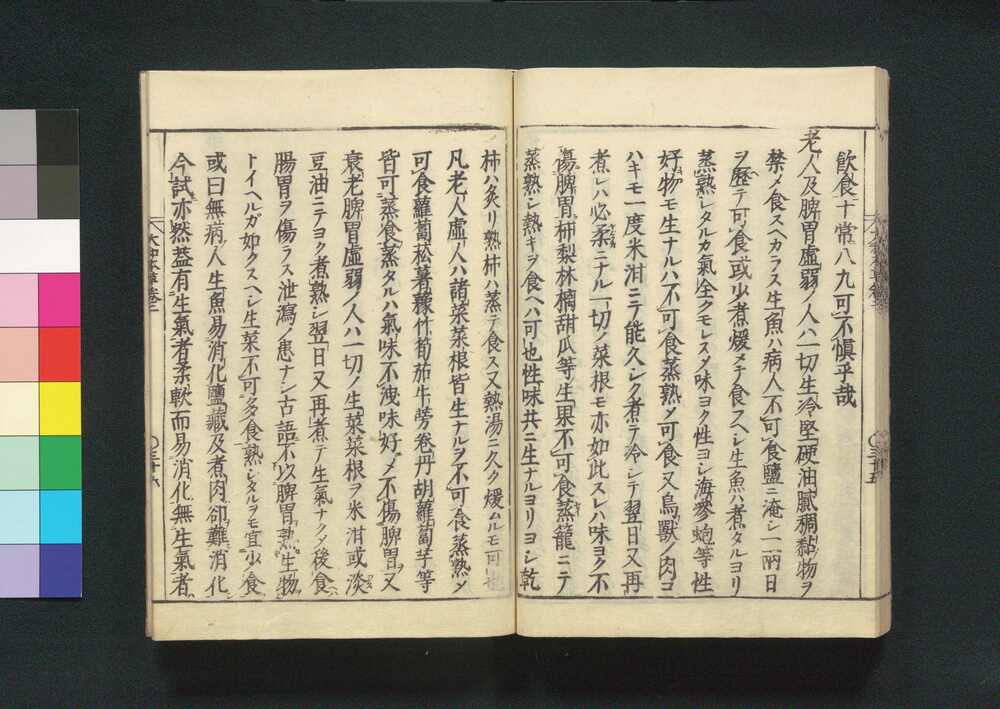 飲食十常八九可不愼乎哉
老人及脾胃虛弱ノ人ハ一切生冷堅硬油膩稠黏物ヲ
禁メ食スヘカラス生魚ハ病人不可食鹽ニ淹シ一兩日
ヲ歷テ可食或少煮煖メテ食スヘシ生魚ハ煮タルヨリ
蒸熟シタルカ氣全クモレスメ味ヨク性ヨシ海參鮑等性
好物モ生ナルハ不可食蒸熟メ可食又鳥獸ノ肉コ
ハキモ一度米泔ニテ能久シク煮テ冷シテ翌日又再
煮レハ必柔ニナル一切ノ菜根モ亦如此スレハ味ヨク不
傷脾胃柿梨林檎甜瓜等生果不可食蒸籠ニテ
蒸熟シ熱キヲ食ヘハ可也性味共ニ生ナルヨリヨシ乾
柿ハ炙リ熟柿ハ蒸テ食ス又熱湯ニ久ク煖ムルモ可也
凡老人虛人ハ諸菜菜根皆生ナルヲ不可食蒸熟メ
可食蘿蔔松蕈竹筍茄牛蒡卷丹胡蘿蔔芋等
皆可蒸食蒸タルハ氣味不洩味好メ不傷脾胃又
衰老脾胃虛弱ノ人ハ一切ノ生菜菜根ヲ米泔或淡
豆油ニテヨク煮熟シ翌日又再煮テ生氣ナクメ後食
腸胃ヲ傷ラス泄瀉ノ患ナシ古語不以脾胃熟生物
トイヘルガ如クスヘシ生菜不可多食熟シタルヲモ宜少食
或曰無病人生魚易消化鹽藏及煮肉卻難消化
今試亦然蓋有生氣者柔軟而易消化無生氣者
大和本草卷之二
三十六